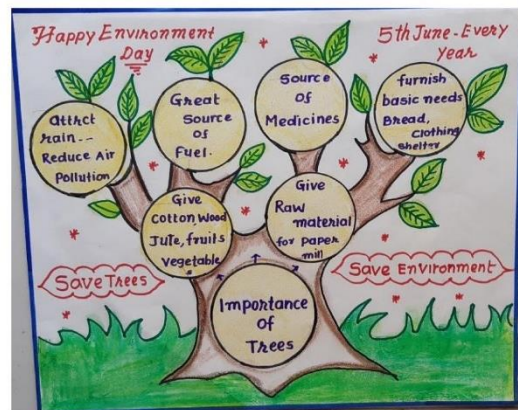 Happy Environment
Day
5th June - Every
Year
Attrct
rain--
Reduce Air
Pollution
Great
Source
of
Fuel.
Source
of
Medicines
furnish
basic needs
Bread,
Clothing
Shelter
Give
Cotton, Wood
Jute, fruits
Vegetable
Give
Raw
material
for paper
mill
Save Trees
Save Environment
Importance
of
Trees